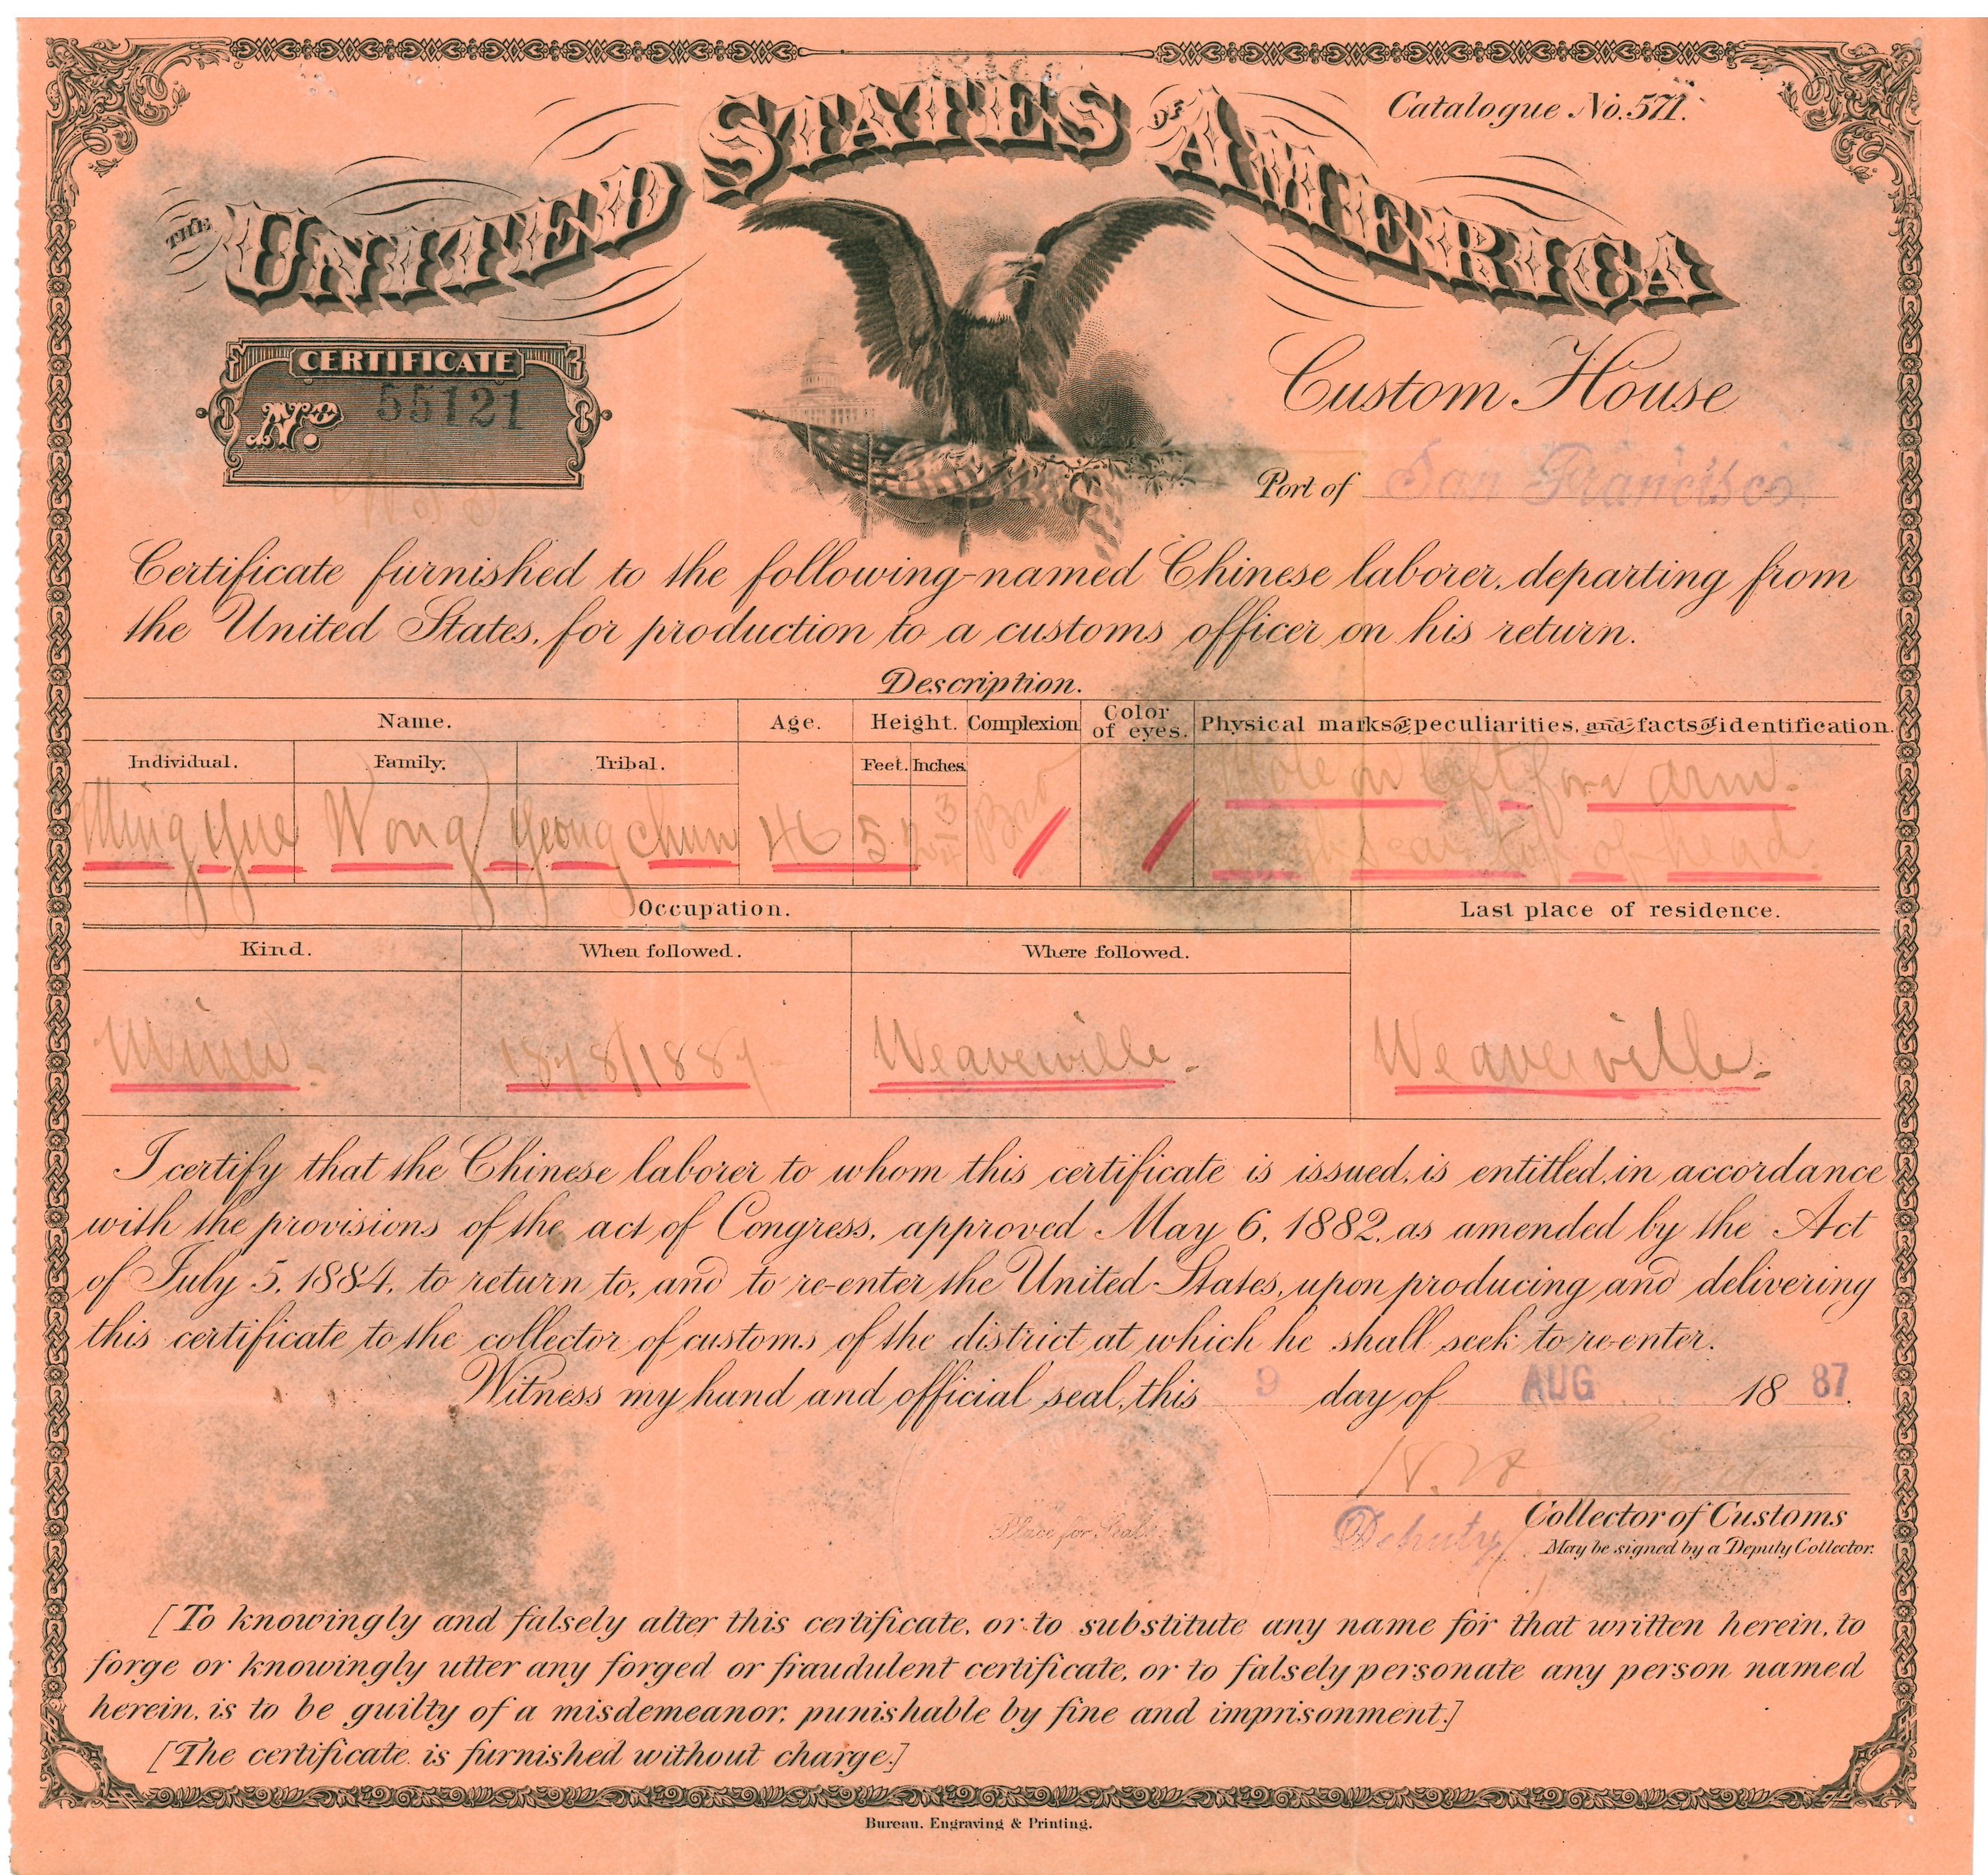 Catalogue No. 571.
THE UNITED STATES OF AMERICA
CERTIFICATE
No. 55121
Custom House
Port of San Francisco
Certificate furnished to the following-named Chinese laborer, departing from
the United States, for production to a customs officer on his return.
Description.
Name. Age. Height. Complexion Color of eyes. Physical marks or peculiarities, and facts of identification.
Individual. Family. Tribal. Feet. Inches.
Mole on left fore arm.
Ming Yue Wong Yeong chun 46 5 2 3/4 Bro
scar top of head
Occupation. Last place of residence.
Kind. When followed. Where followed.
Miner. 1878/1887 Weaverville. Weaverville.
I certify that the Chinese laborer to whom this certificate is issued, is entitled, in accordance
with the provisions of the act of Congress, approved May 6, 1882, as amended by the Act
of July 5, 1884, to return to, and to re-enter the United States, upon producing and delivering
this certificate to the collector of customs of the district at which he shall seek to re-enter.
Witness my hand and official seal, this 9 day of AUG 1887.
Place for Seal.
Deputy Collector of Customs
May be signed by a Deputy Collector.
[To knowingly and falsely alter this certificate, or to substitute any name for that written herein, to
forge or knowingly utter any forged or fraudulent certificate, or to falsely personate any person named
herein, is to be guilty of a misdemeanor, punishable by fine and imprisonment.]
[The certificate is furnished without charge.]
Bureau, Engraving & Printing.